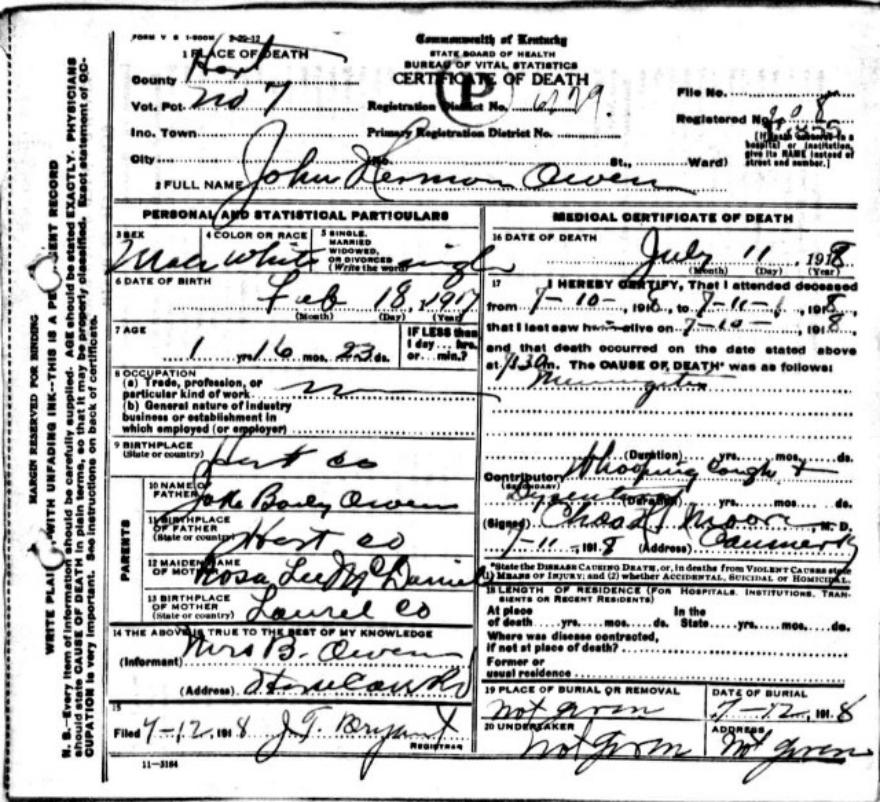 FORM V S 1-500M 2-22-12
Commonwealth of Kentucky
STATE BOARD OF HEALTH
BUREAU OF VITAL STATISTICS
CERTIFICATE OF DEATH
1 PLACE OF DEATH
County Hart
Vot. Pct. No 7
Inc. Town
City
Registration District No. 6729.
Primary Registration District No.
(No. St., Ward)
File No.
Registered No.
[If death occurred in a
hospital or institution,
give its NAME instead of
street and number.]
2 FULL NAME John Herman Owen
PERSONAL AND STATISTICAL PARTICULARS
3 SEX
Male
4 COLOR OR RACE
White
5 SINGLE,
MARRIED
WIDOWED,
OR DIVORCED
(Write the word) single
6 DATE OF BIRTH
Feb 18, 1917
(Month) (Day) (Year)
7 AGE
1 yrs. 16 mos. 23 ds.
IF LESS than
1 day ... hrs.
or ... min.?
8 OCCUPATION
(a) Trade, profession, or
particular kind of work
(b) General nature of industry
business or establishment in
which employed (or employer)
9 BIRTHPLACE
(State or country) Hart co
PARENTS
10 NAME OF
FATHER Jake Baily Owen
11 BIRTHPLACE
OF FATHER
(State or country) Hart co
12 MAIDEN NAME
OF MOTHER Rosa Lee McDaniel
13 BIRTHPLACE
OF MOTHER
(State or country) Laurel co
14 THE ABOVE IS TRUE TO THE BEST OF MY KNOWLEDGE
(Informant) Mrs B. Owen
(Address)
15
Filed 7-12, 1918 J. T. Bryant
REGISTRAR
11-3184
MEDICAL CERTIFICATE OF DEATH
16 DATE OF DEATH
July 11, 1918
(Month) (Day) (Year)
17 I HEREBY CERTIFY, That I attended deceased
from 7-10-, 1918, to 7-11-, 1918,
that I last saw h alive on 7-10-, 1918,
and that death occurred on the date stated above
at m. The CAUSE OF DEATH* was as follows:
Meningitis
(Duration) yrs. mos. ds.
Contributory Whooping Cough +
(SECONDARY)
Dysentery (Duration) yrs. mos. ds.
(Signed) Chas Moore M. D.
7-11-, 1918 (Address) Canmer Ky
*State the DISEASE CAUSING DEATH, or, in deaths from VIOLENT CAUSES state
(1) MEANS OF INJURY; and (2) whether ACCIDENTAL, SUICIDAL OR HOMICIDAL.
18 LENGTH OF RESIDENCE (FOR HOSPITALS, INSTITUTIONS, TRANSIENTS OR RECENT RESIDENTS)
At place In the
of death yrs. mos. ds. State yrs. mos. ds.
Where was disease contracted,
if not at place of death?
Former or
usual residence
19 PLACE OF BURIAL OR REMOVAL
not given
DATE OF BURIAL
7-12, 1918
20 UNDERTAKER
not given
ADDRESS
not given
MARGIN RESERVED FOR BINDING
WRITE PLAINLY WITH UNFADING INK--THIS IS A PERMANENT RECORD
N. B.--Every item of information should be carefully supplied. AGE should be stated EXACTLY. PHYSICIANS
should state CAUSE OF DEATH in plain terms, so that it may be properly classified. Exact statement of OC-
CUPATION is very important. See instructions on back of certificate.